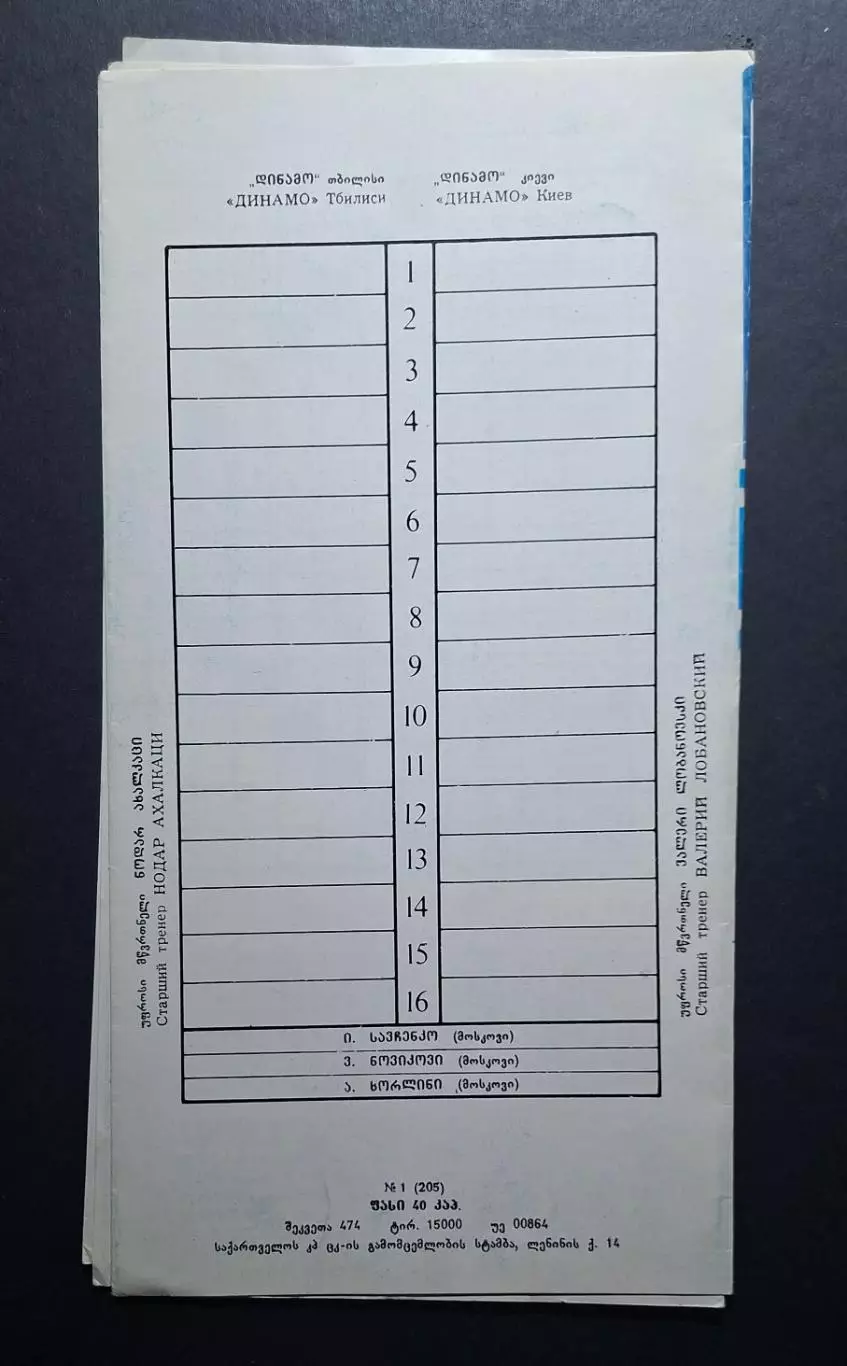 „დინამო“ თბილისი
«ДИНАМО» Тбилиси
„დინამო“ კიევი
«ДИНАМО» Киев
1
2
3
4
5
6
7
8
9
10
11
12
13
14
15
16
უფროსი მწვრთნელი ნოდარ ახალკაცი
Старший тренер НОДАР АХАЛКАЦИ
უფროსი მწვრთნელი ვალერი ლობანოვსკი
Старший тренер ВАЛЕРИЙ ЛОБАНОВСКИЙ
ი. სავჩენკო (მოსკოვი)
ვ. ნოვიკოვი (მოსკოვი)
ა. ხორლინი (მოსკოვი)
№ 1 (205)
ფასი 40 კაპ.
შეკვეთა 474 ტირ. 15000 უე 00864
საქართველოს კპ ცკ-ის გამომცემლობის სტამბა, ლენინის ქ. 14